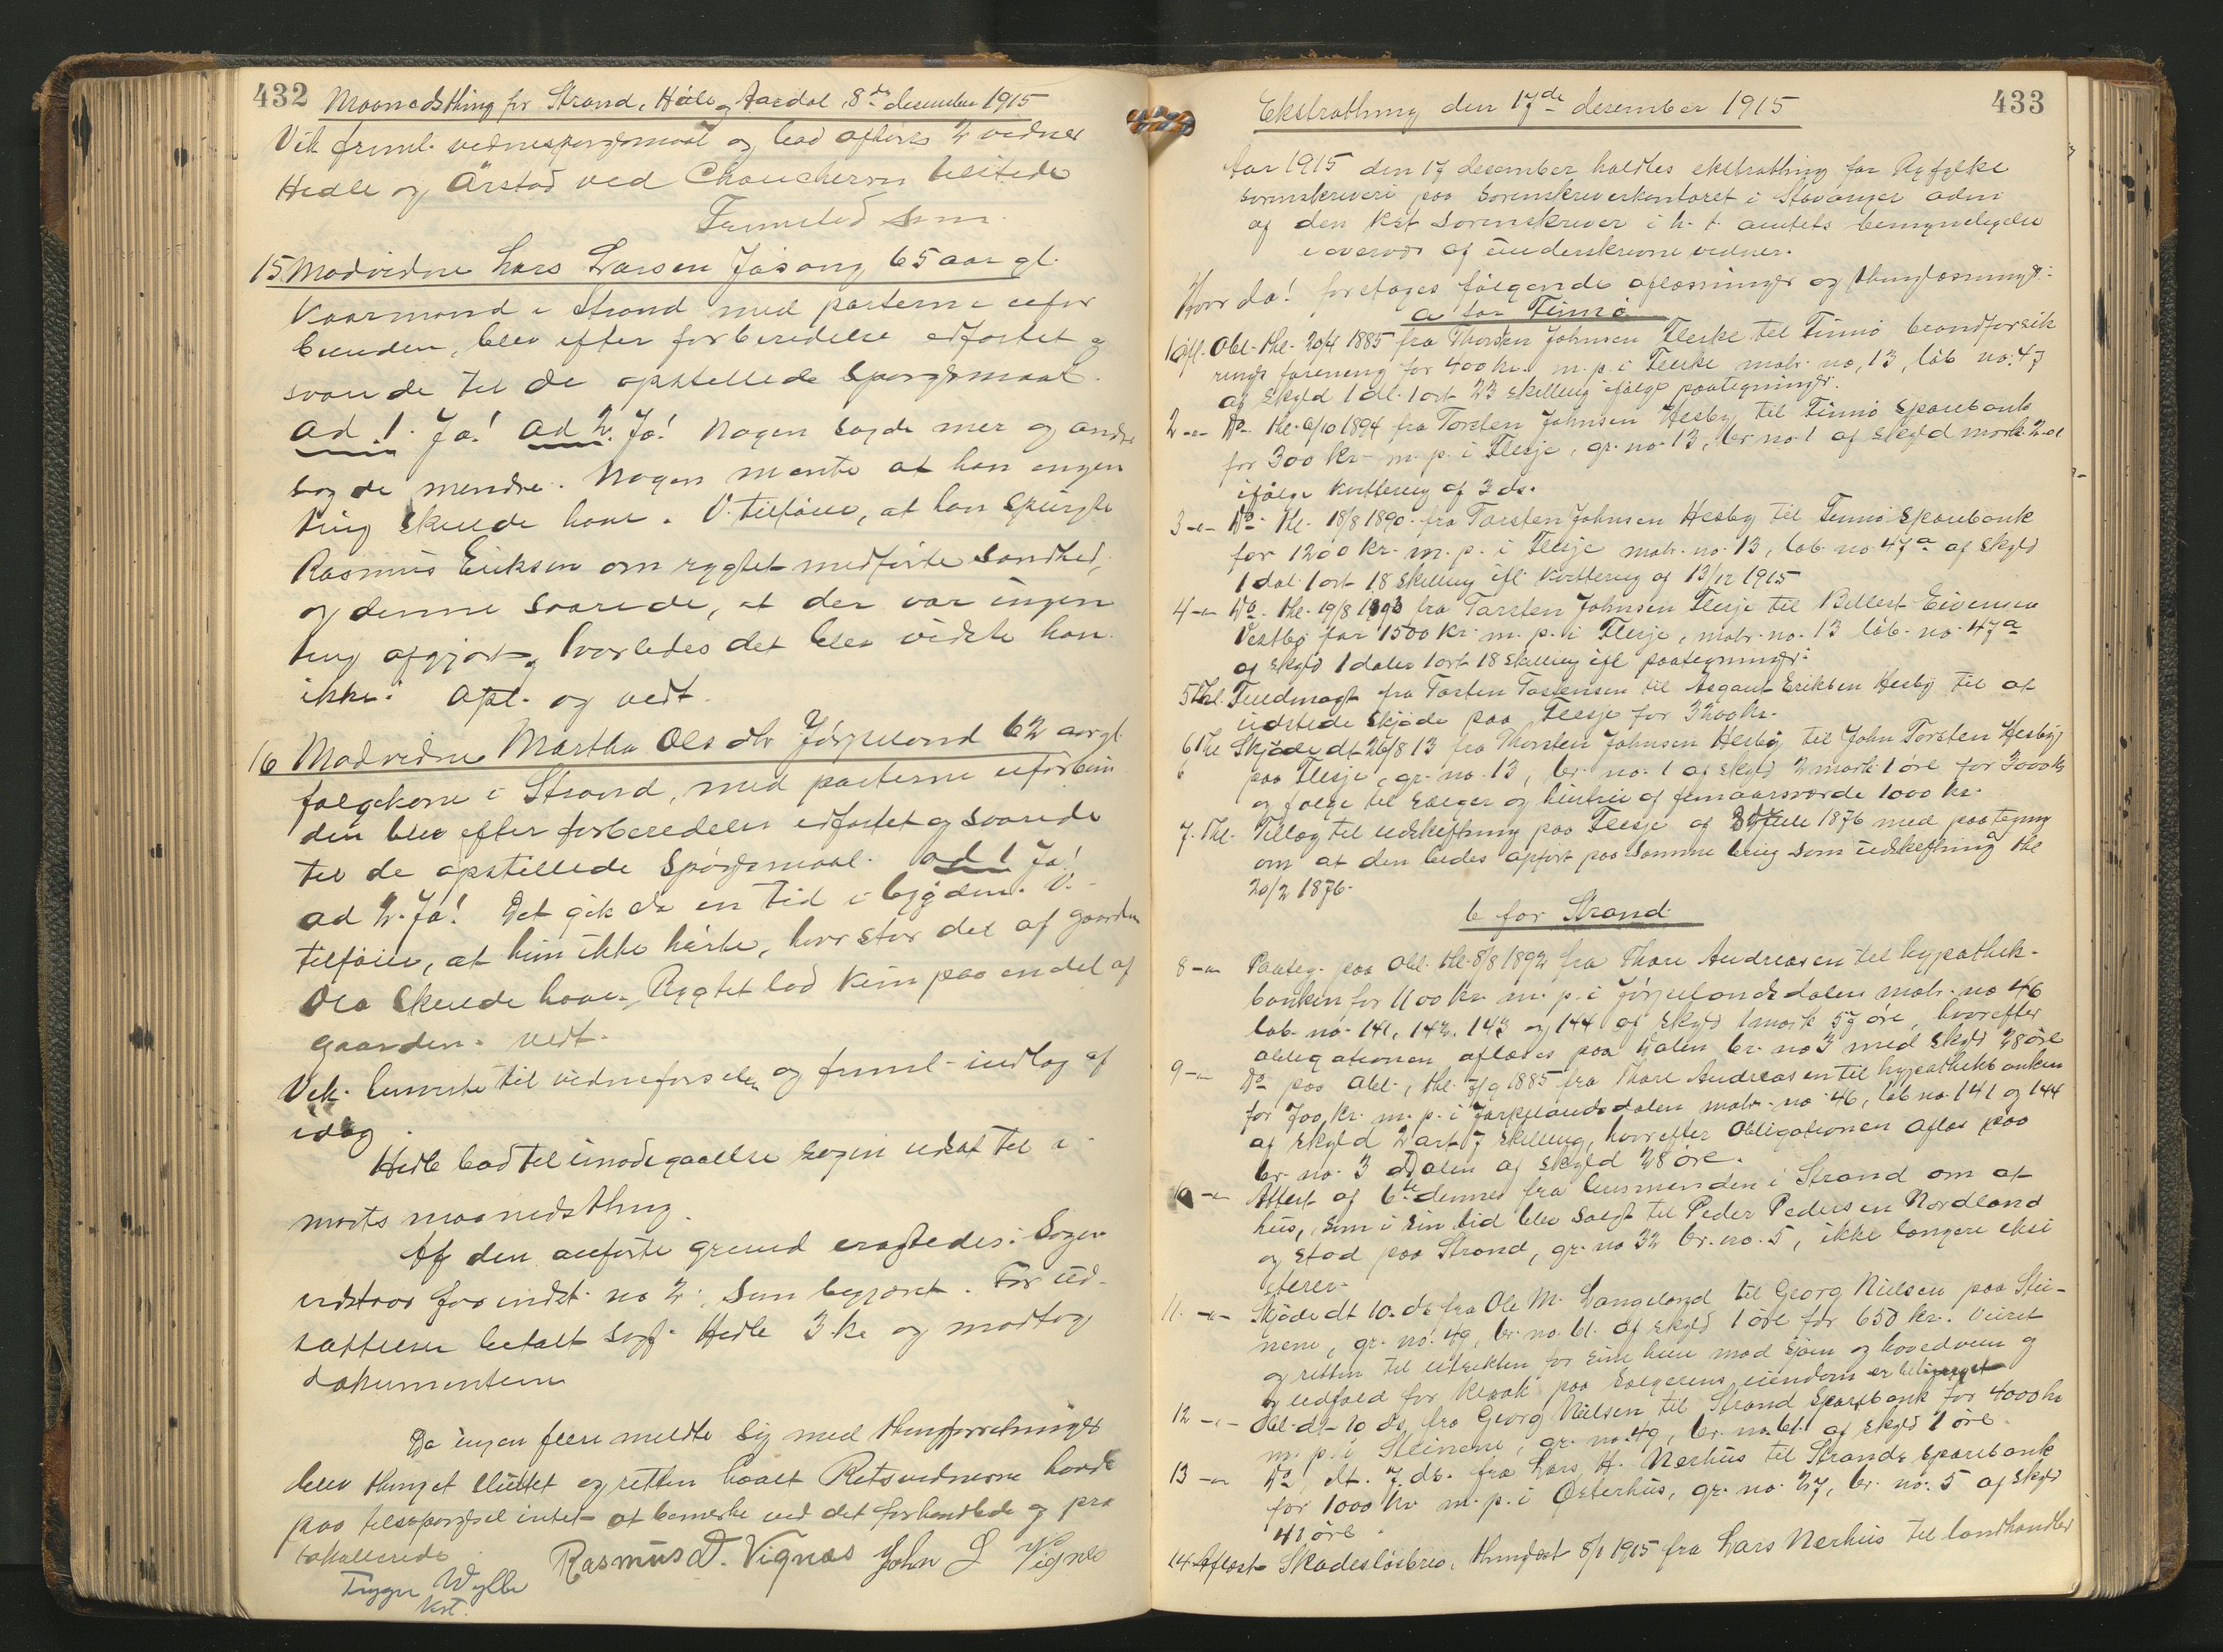 432 Maanedsthing for Strand, HØle og Aardal 8de desember 1915
Vek freml. vidnespørgsmaal og bad afhørt 2 vidner
Hedle og Årstad ved
Fremstod som
15 Modvidne Lars Larsen Jøsang 65 aar gl.
Kaarmand i Strand med parterne ufor
bunden, blev efter forberedelse edfæstet og
svarede til de opstillede spørgsmaal.
ad. 1. Ja! ad 2. Ja! Nogen sagde mer og andre
sagde mendre. Nogen mente at han ingen
ting skulde have. V. tilføier, at han spurgte
Rasmus Eriksen om rygtet medførte sandhed,
og denne svarede, at der var ingen
ting afgjort, hvorledes det blev vidste han
ikke. Opl. og vedt.
16 Modvidne Martha Olsdtr Jørpeland 62 aar gl.
følgekone i Strand, med parterne uforbun
den blev efter forberedelse edfæstet og svarede
til de opstillede spørgsmaal. ad 1 Ja!
ad 2. Ja! Det gik da en tid i bygden. V.
tilføier, at hun ikke hørte, hvor stor del af gaarden
Ola skulde have. Rygtet lød kun paa en del af
gaarden. Vedt.
Vek. henviste til vidneførselen og freml. indlæg af
idag.
Hedle bad til imødegaaelse sagen udsat til
marts maanedsthing.
Af den anførte grund eragtedes: Sagen
udstaar for indst. no 2, som begjæret. For ud-
sættelsen betalt sagf. Hedle 3 kr og modtog
dokumenterne
Da ingen flere meldte sig med thingforretninger
blev thinget sluttet og retten hævet. Retsvidnerne havde
paa tilspørgsel intet at bemerke ved det forhandlede og pro
tokollerede
Rasmus D. Vignes John J Vignes
Trygve Wyller
kst.
Ekstrathing den 17de desember 1915 433
Aar 1915 den 17 desember holdtes ekstrathing for Ryfylke
sorenskriveri paa sorenskriverkontoret i Stavanger adm
af den kst sorenskriver i h. t. amtets bemyndigelse
i overvær af underskrevne vidner.
Hvor da! foretages følgende aflæsninger og thinglæsninger:
a for Finnø
1 afl. Obl. thl. 20/4 1885 fra Thorsten Johnsen Fleske til Finnø brandforsik
rings forening for 400 kr. m. p. i Fleske matr. no. 13, løb no. 47
af skyld 1 dl. 1 ort 23 skilling ifølge paategninger.
2 -"- Do thl. 6/10 1894 fra Torsten Johnsen Hesby til Finnø sparebank
for 300 kr m. p. i Flesje, gr. no. 13, br. no. 1 af skyld mark 2.01
ifølge kvittering af 3 ds.
3 -"- Do thl. 18/8 1890 fra Torsten Johnsen Hesby til Finnø sparebank
for 1200 kr. m. p. i Flesje matr. no. 13, løb no 47a af skyld
1 dal. 1 ort 18 skilling ifl kvittering af 13/12 1915
4 -"- Do thl. 19/8 1893 fra Torsten Johnsen Flesje til Eivensen
Vestbø for 1500 kr. m. p. i Flesje, matr. no. 13 løb. no. 47a
og skyld 1 daler 1 ort 18 skilling ifl paategninger.
5 Thl. Fuldmagt fra Torsten Torstensen til Asgaut Eriksen Hesby til at
udstede skjøde paa Flesje for 3200 kr.
6 Thl Skjøde dt. 26/8 13 fra Thorsten Johnsen Hesby til John Torsten Hesby
paa Flesje, gr. no. 13, br. no. 1 af skyld 2 mark 1 øre for 3000 kr
og følge til sælger og hustru af femaarsværde 1000 kr.
7. Thl. Tillæg til udskiftning paa Flesje af 1876 med paategning
om at den bedes opført paa samme bevis som udskiftning thl
20/2 1876.
b for Strand
8 -"- Paateg. paa Obl. thl. 8/8 1892 fra Thore Andreasen til hypothek-
banken for 1100 kr m. p. i Jørpelandsdalen matr. no 46
løb. no. 141, 142, 143 og 144 af skyld 1 mark 57 øre, hvorefter
obligationen aflæses paa Dalen br. no 3 med skyld 28 øre
9 -"- Do paa Obl., thl. 7/9 1885 fra Thore Andreasen til hypothekbanken
for 700 kr. m. p. i Jørpelandsdalen matr. no 46, løb no. 141 og 144
af skyld 2 ort 7 skilling, hvorefter Obligationen aflæs paa
br. no. 3 Dalen af skyld 28 øre.
10 -"- Attest af 6te dennes fra lensmanden i Strand om at
hus, som i sin tid blev solgt til Peder Pedersen Nordland
og stod paa Strand, gr. no 32 br. no. 5, ikke længere eksi
sterer.
11. -"- Skjøde dt 10. ds fra Ole M. Langeland til Georg Nielsen paa Stei-
nene, gr. no. 49, br. no. 61. af skyld 1 øre for 650 kr. Veiret
og retten til utsikten for sine huse mod sjøen og hovedveien og
og udfald for kloak paa sælgerens eiendom er betinget
12 -"- Obl. dt. 10 ds. fra Georg Nielsen til Strand Sparebank for 4000 kr
m. p. i Steinene, gr. no. 49, br. no. 61. af skyld 1 øre.
13 -"- Do, dt. 7. ds. fra Lars H. Nerhus til Strands Sparebank
for 1000 kr m. p. i Østerhus, gr. no. 27, br. no. 5 af skyld
41 øre.
14 Aflæst Skadesløsbrev, thinglæst 8/1 1915 fra Lars Nerhus til landhandler